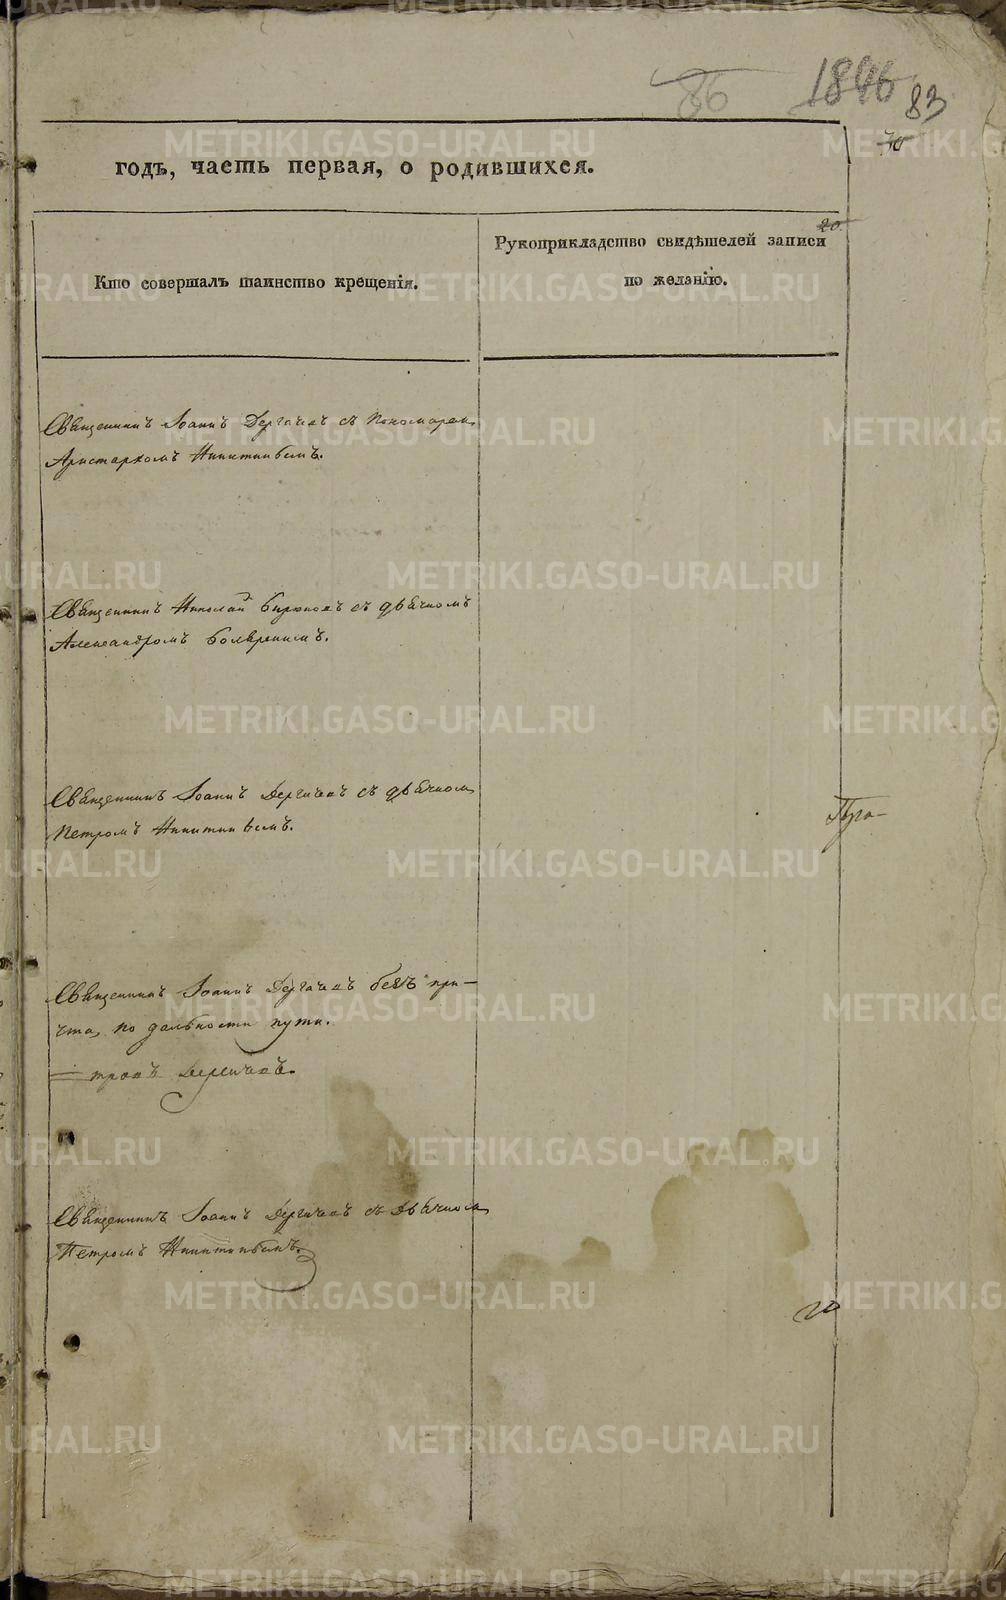 86
1846
83
70
годъ, часть первая, о родившихся.
20
Кто совершалъ таинство крещенія.
Рукоприкладство свидѣтелей записи
по желанію.
Священникъ Іоаннъ Дергачевъ съ пономарем
Аристархомъ Никитинымъ.
Священникъ Николай Бирюковъ съ дьячкомъ
Александромъ
Священникъ Іоаннъ Дергачевъ съ дьячком
Петромъ Никитинымъ.
Пра-
Священникъ Іоаннъ Дергачевъ безъ при-
чта, по дальности пути.
Дергачевъ.
Священникъ Іоаннъ Дергачевъ съ дьячком
Петромъ Никитинымъ.
METRIKI.GASO-URAL.RU